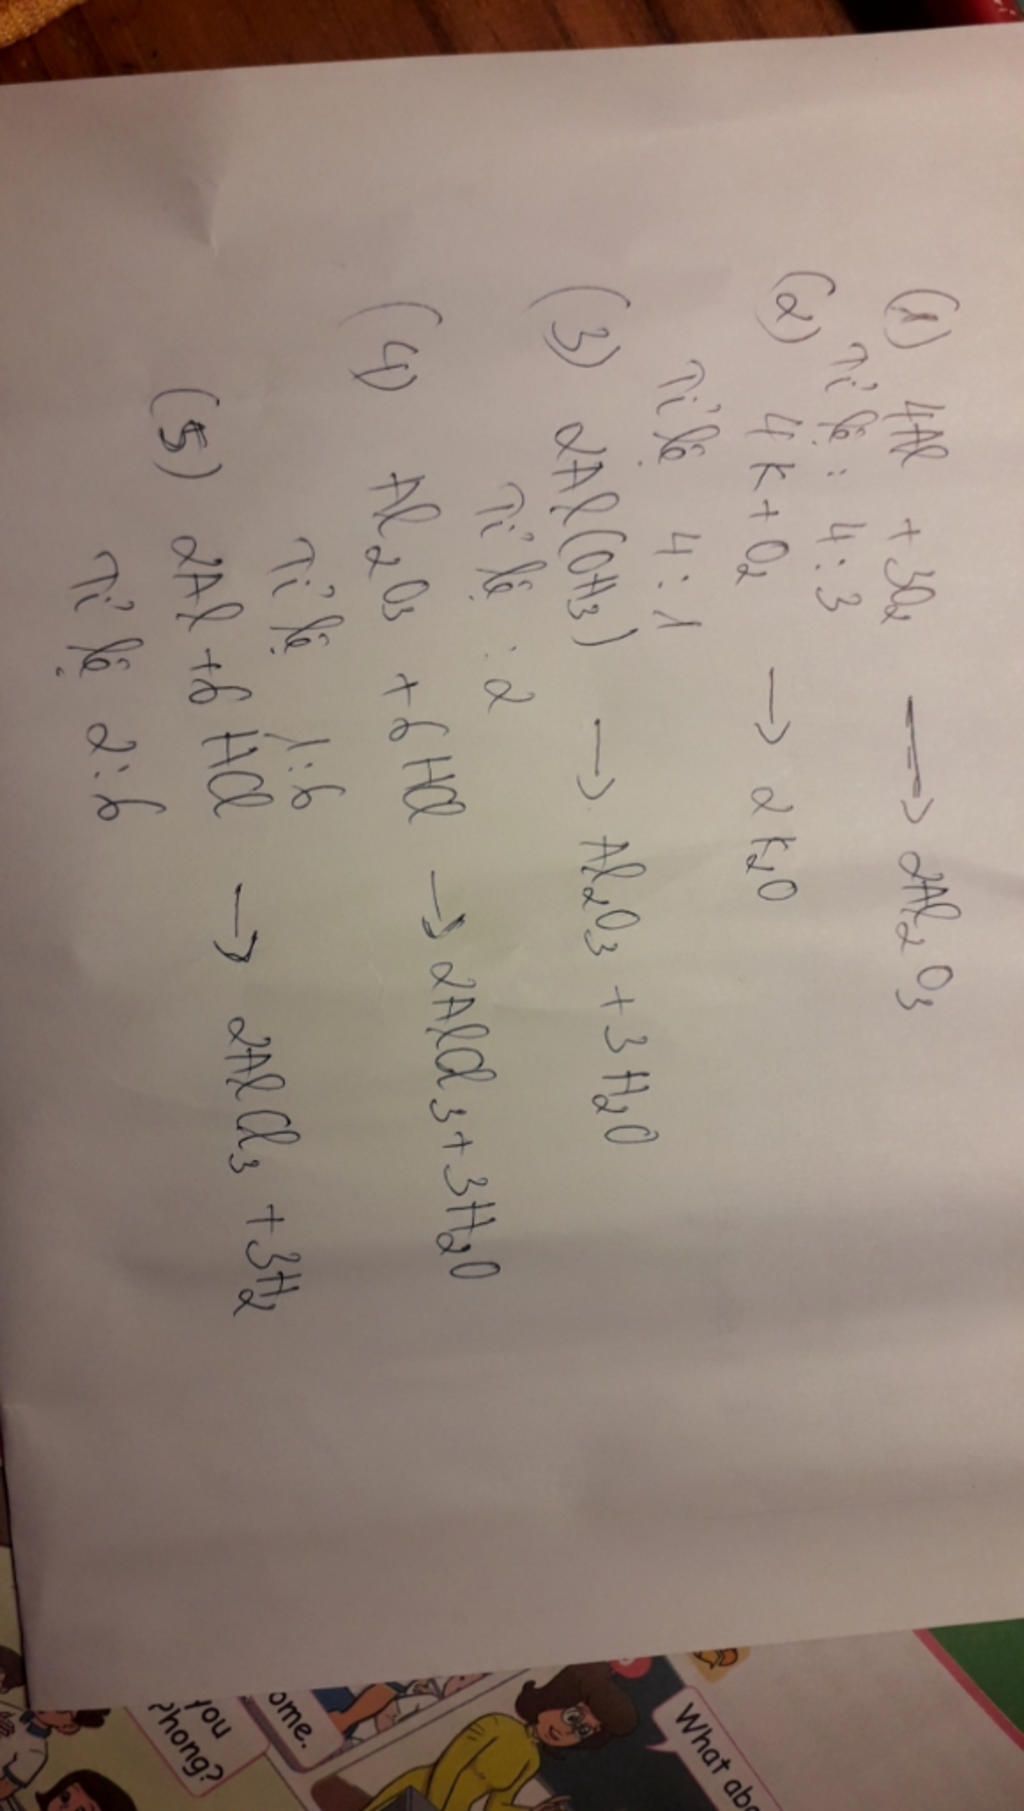 (1) 4Al + 3O₂ ⟶ 2Al₂O₃
Tỉ lệ: 4:3
(2) 4K + O₂ → 2K₂O
Tỉ lệ 4:1
(3) 2Al(OH₃) → Al₂O₃ + 3H₂O
Tỉ lệ : 2
(4) Al₂O₃ + 6HCl → 2AlCl₃ + 3H₂O
Tỉ lệ 1:6
(5) 2Al + 6HCl → 2AlCl₃ + 3H₂
Tỉ lệ 2:6
What abo
ome.
you
Phong?